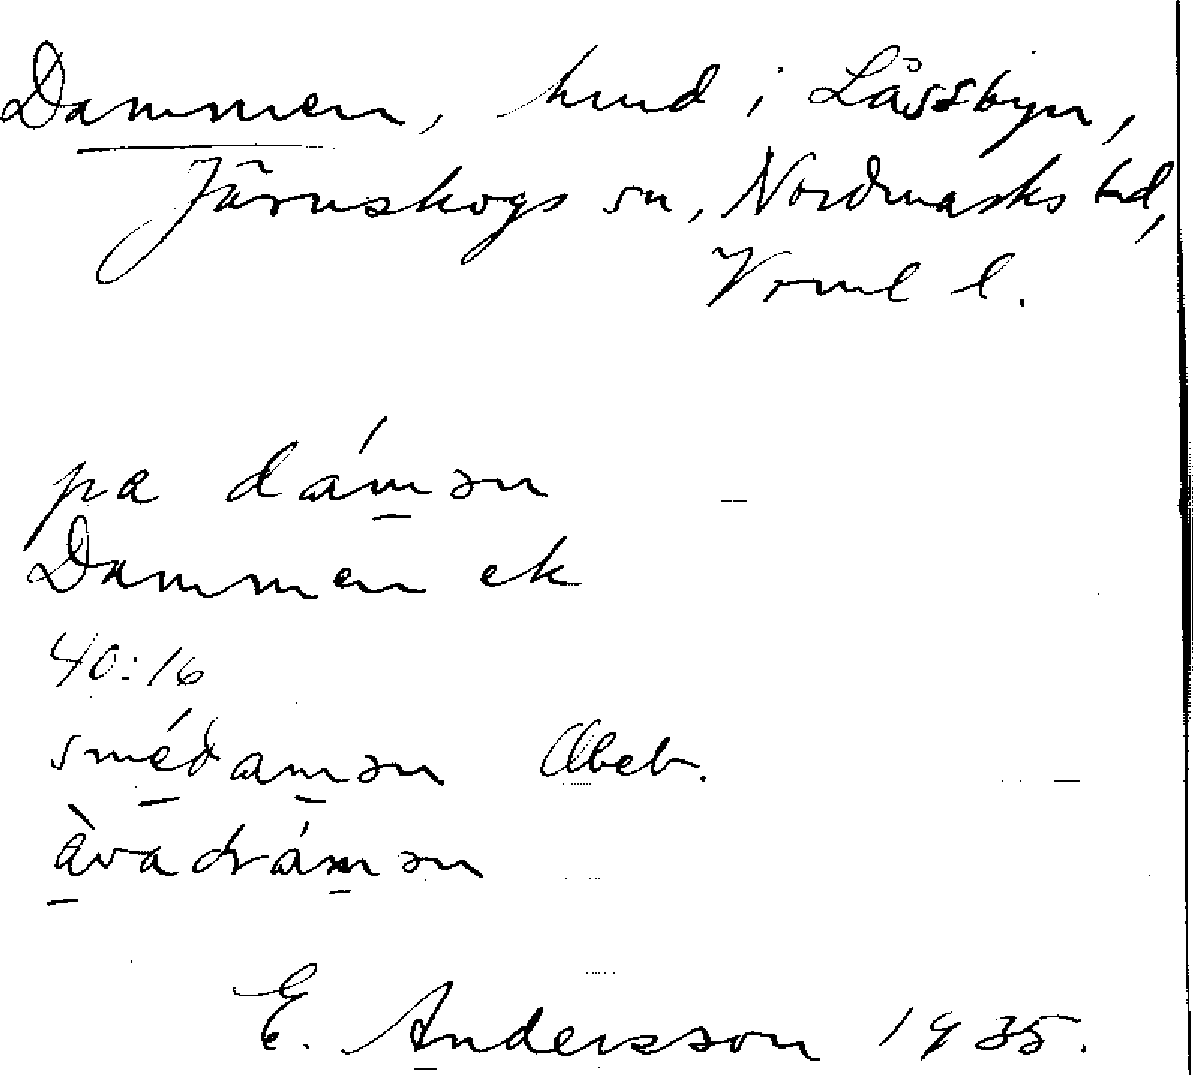 Dammen, hmd i Låssbyn,
Järnskogs sn, Nordmarks hd,
Vrml l.
pa dámǝn
Dammen ek
40:16
smédamǝn Obeb.
àvadrámǝn
E. Andersson 1935.